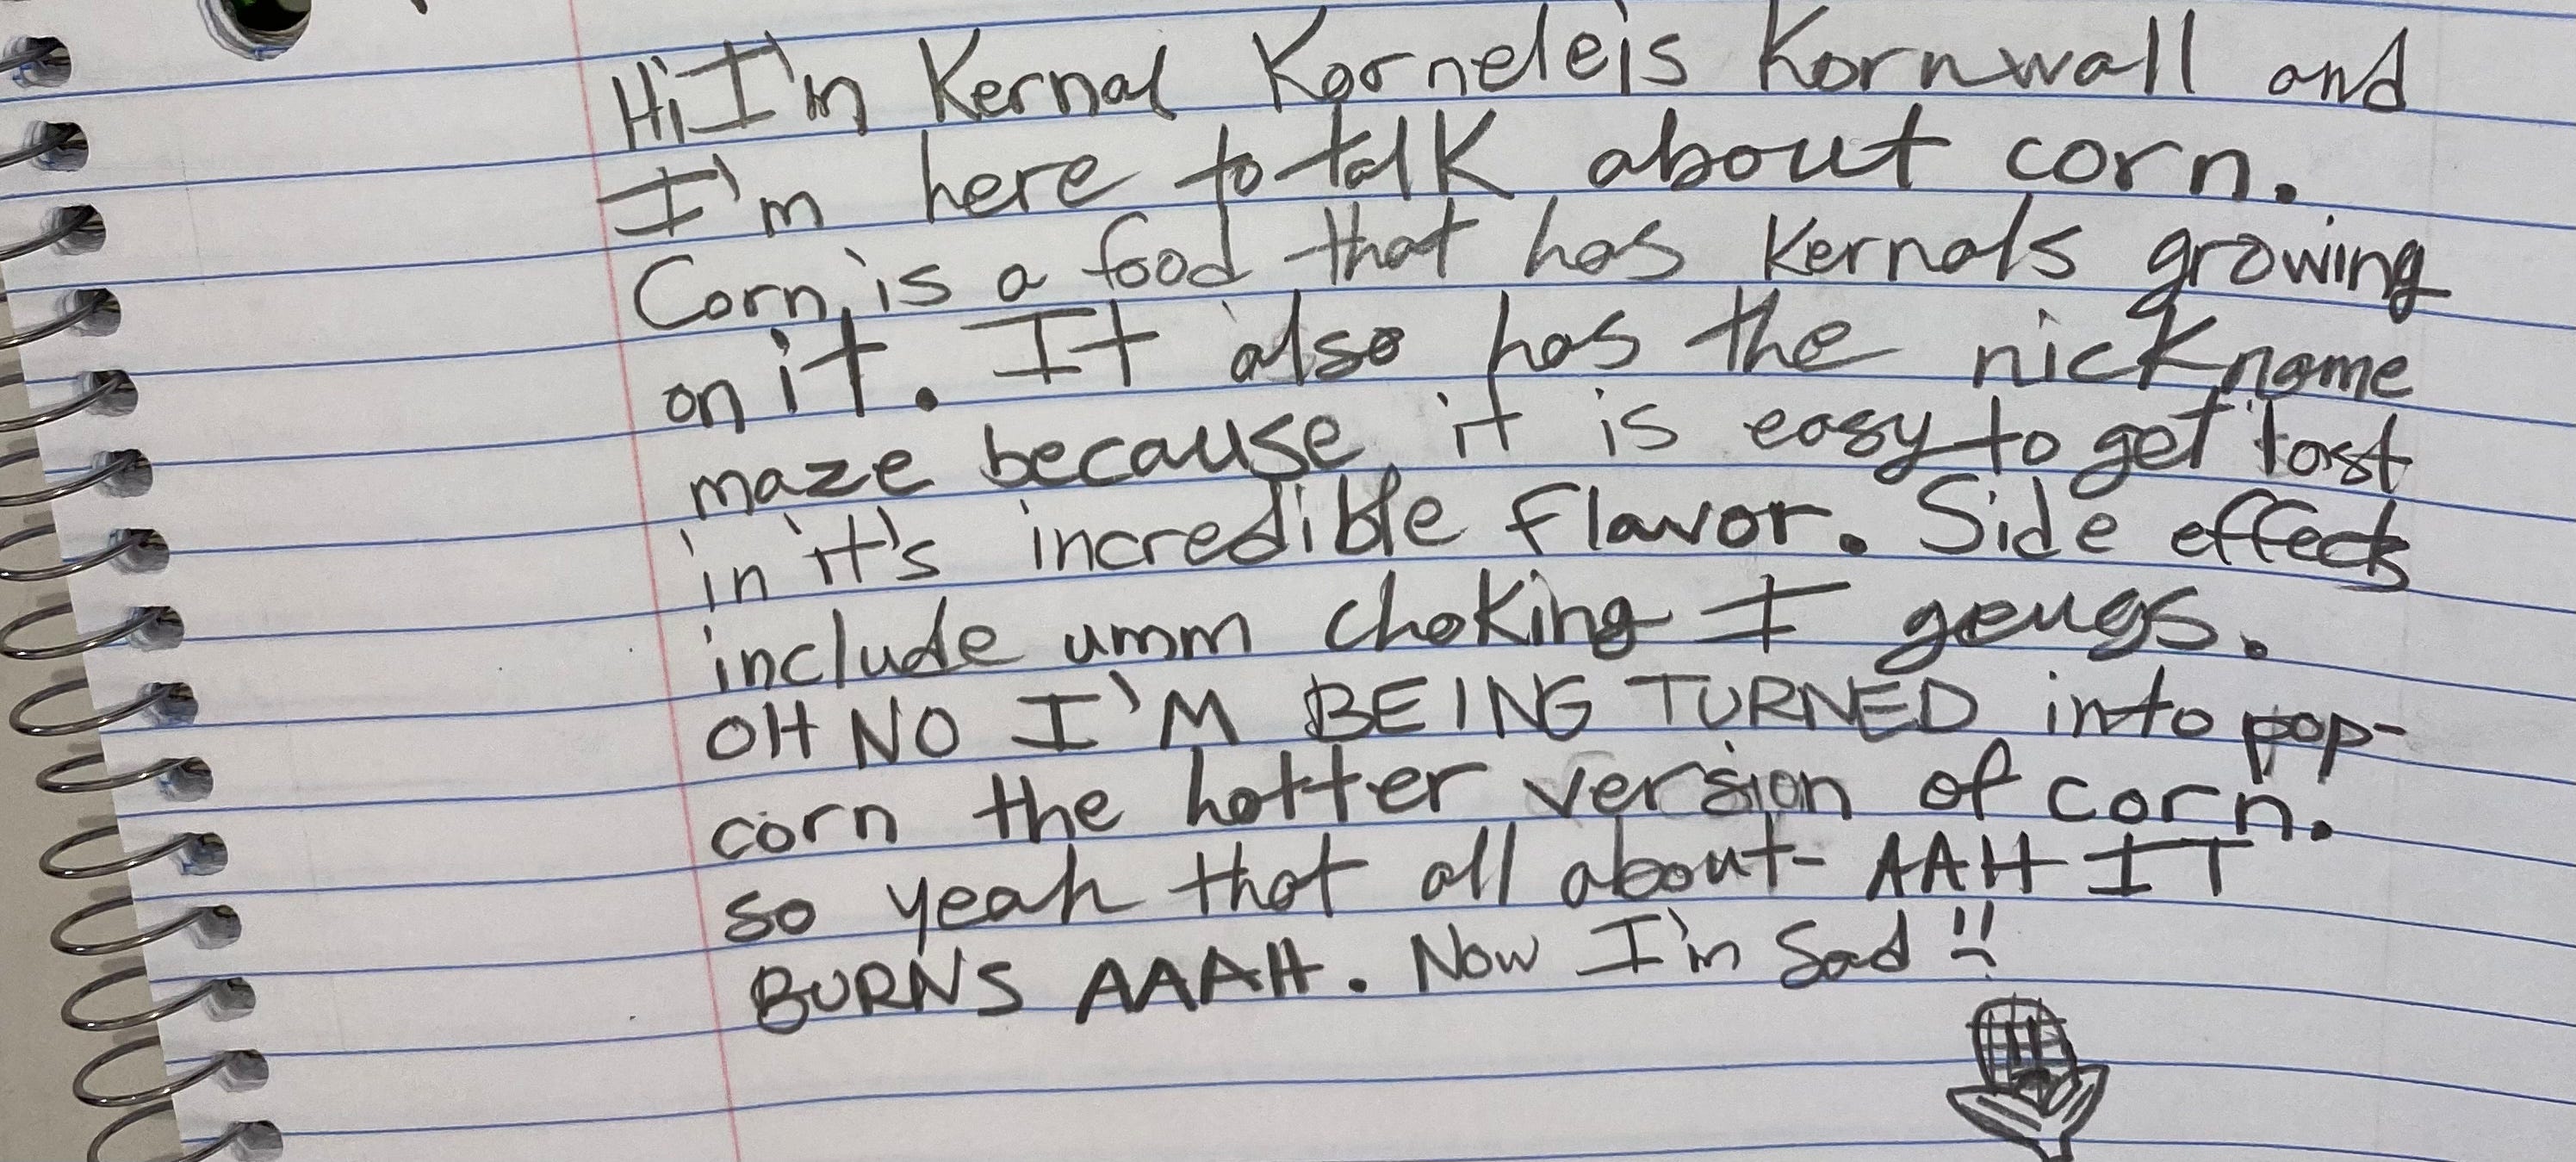 Hi I'm Kernal Korneleis Kornwall and
I'm here to talk about corn.
Corn is a food that has kernals growing
on it. It also has the nickname
maze because it is easy to get lost
in it's incredible flavor. Side effects
include umm choking I geugs.
OH NO I'M BEING TURNED into pop-
corn the hotter version of corn.
so yeah that all about- AAH IT
BURNS AAAH. Now I'm Sad